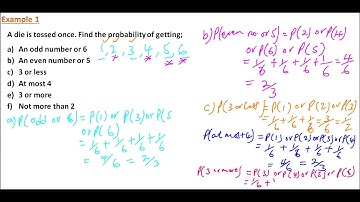 Example 1
A die is tossed once. Find the probability of getting;
a) An odd number or 6
b) An even number or 5
c) 3 or less
d) At most 4
e) 3 or more
f) Not more than 2
1, 2, 3, 4, 5, 6
a) P(odd or 6) = P(1) or P(3) or P(5
or P(6)
= 1/6 + 1/6 + 1/6 + 1/6
= 4/6 = 2/3
b) P(even no or 5) = P(2) or P(4)
or P(6) or P(5)
= 1/6 + 1/6 + 1/6 + 1/6 = 4/6
= 2/3
c) P(3 or less) = P(1) or P(2) or P(3)
= 1/6 + 1/6 + 1/6 = 3/6 = 1/2
P(at most 4) = P(1) or P(2) or P(3) or P(4)
= 1/6 + 1/6 + 1/6 + 1/6
= 4/6 = 2/3
P(3 or more) = P(3) or P(4) or P(5) or P(6)
= 1/6 +